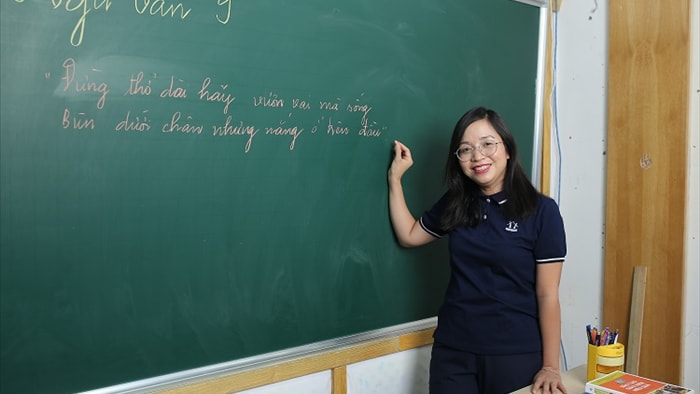 Ngữ Văn 9
"Đừng thở dài hãy vươn vai mà sống
Bùn dưới chân nhưng nắng ở trên đầu"